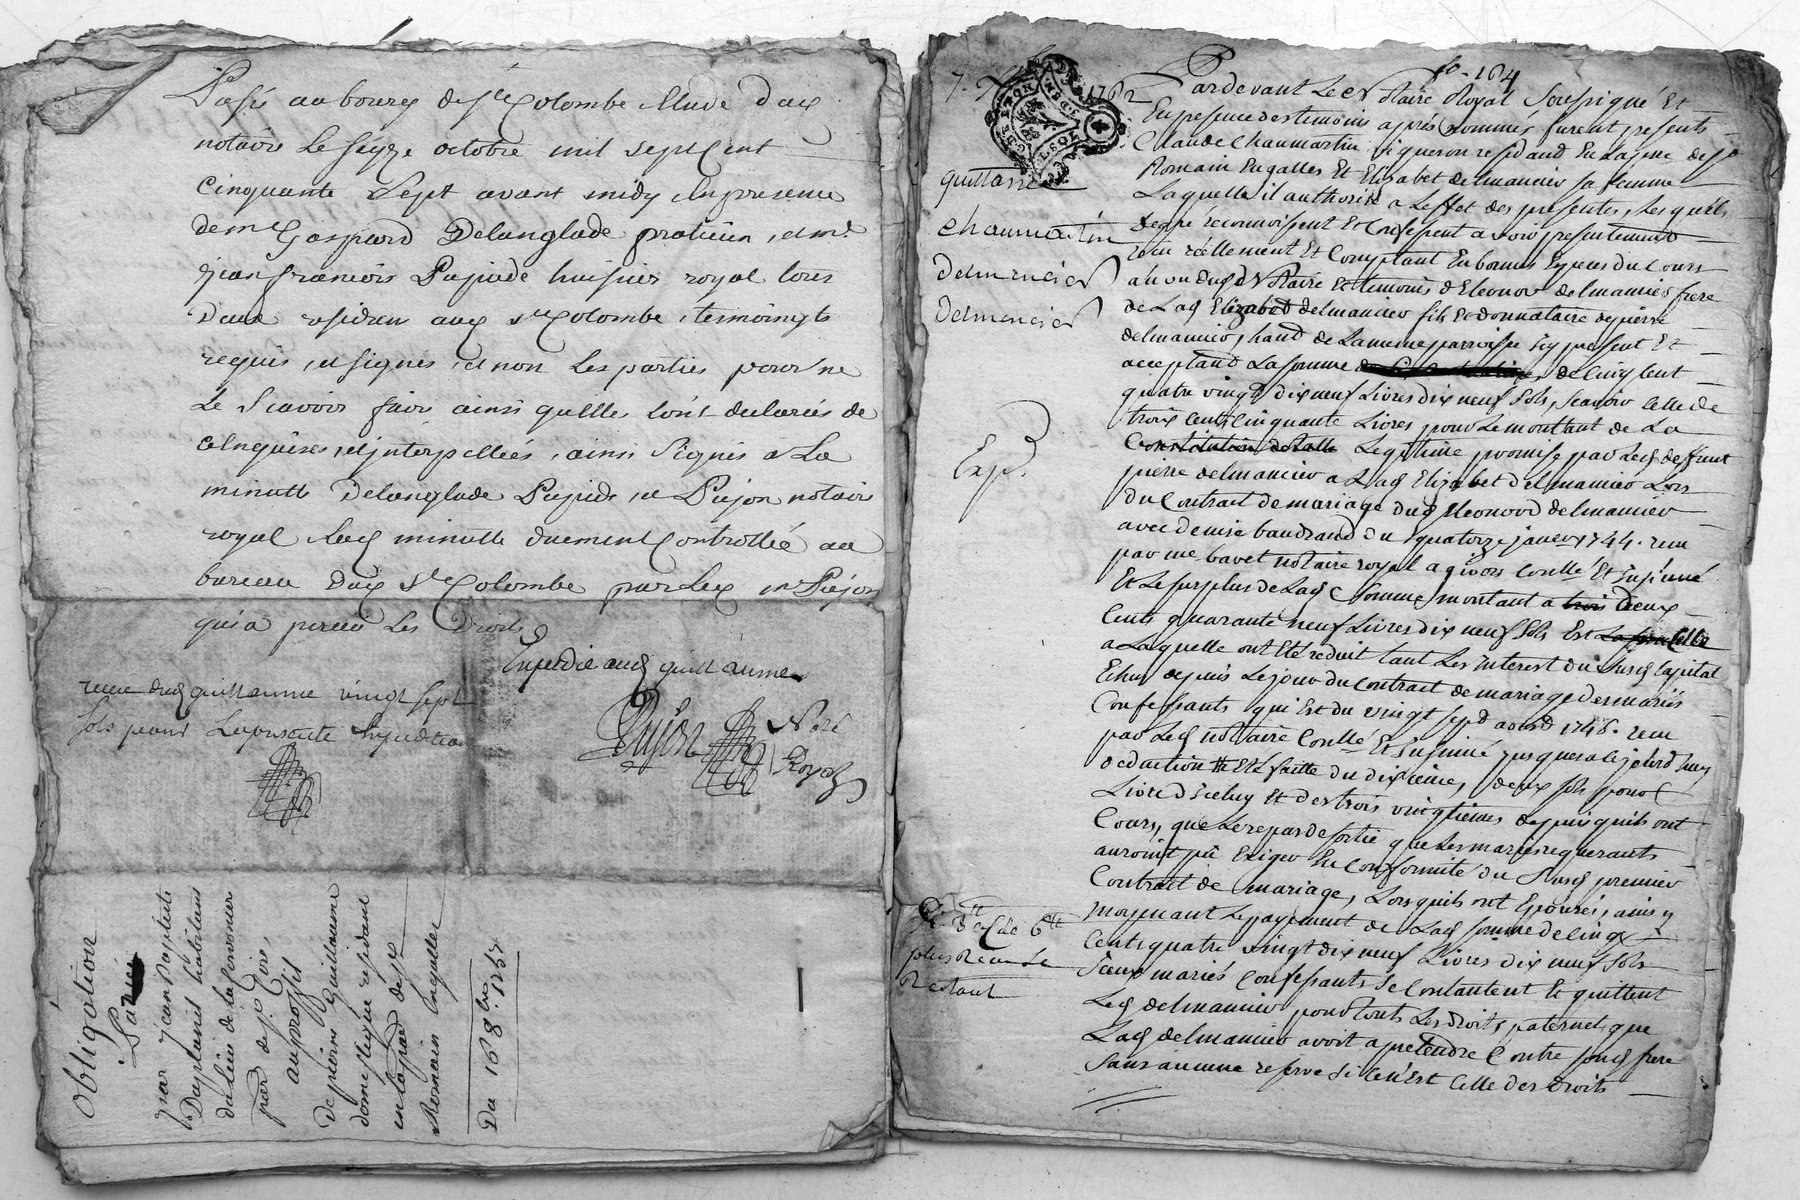 Passé au bourg de Ste Colombe Etude dud
notaire le seize octobre mil sept cent
cinquante sept avant midy en presence
de me Gaspard Delanglade praticien, et me
jean francois Pupide huissier royal tous
deux residen aud Ste Colombe, temoingts
requis, et signés, et non les parties pour ne
le scavoir faire ainsi quelles l'ont declarées de
ce enquises, et interpellées, ainsi signés a la
minutte Delanglade Pupide, et Pujon notaire
royal lad minutte duement controllée au
bureau dud Ste Colombe par led me Pujon
qui a perceu les Droits
Expedié aud guillaume
receu dud guillaume vingt sept
sols pour la presente expedition
Pujon Nore
Royal
Obligation
par jean Baptiste
Desplanes habitant
du lieu de la
par de st Cire,
au proffit
De pierre guillaume
domestique residant
en la parr de st
Romain Engalles
Du 16 8bre 1757
fo. 164
1762
quittance
chaumartin
delmencier
delmencier
Exp.
plus receu le
restant
Pardevant Le Notaire Royal Soussigné Et
En presence des temoins aprés nommés furent presents
Claude Chaumartin vigneron residand En la parr de st
Romain En galles Et Elizabet delmancier sa femme
Laquelle il authorise a Leffet des presentes, Lesquels
de gré reconnoissent Et Confessent avoir presentement
receu réellement Et Comptant En bonnes Especes du Cours
a la vu dud Notaire Et temoins d'Eleonor delmancier frere
de Lad Elizabet delmancier fils Et donnataire de pierre
delmancier, hand de La meme parroisse icy present Et
acceptant La somme de Cinq Cent
quatre vingt dix neuf Livres dix neuf sols, scavoir Celle de
trois Cent Cinquante Livres pour Le montant de La
Constitution dotalle Legitime promise par Led deffunt
pierre delmancier a Lad Elizabet delmancier Lors
du Contrait de mariage dud Eleonord delmancier
avec denise baudrand du quatorze janvier 1744. receu
par me bavet notaire royal a givors Conllé Et insinué
Et Le surplus de Lad Somme montant a trois deux
Cents quarante neuf Livres dix neuf sols Est La Celle
a Laquelle ont Eté reduit tant Les interest du Susd Capital
Echus depuis Le jour du Contrait de mariage des mariés
Confessants qui Est du vingt sept aoust 1748. receu
par Led notaire Conllé Et insinué jusques a ce jourd huy
deduction Et faitte du dixieme, deux sols pour
Livre d'icelluy Et des trois vingtiemes depuis quils ont
Cours, que Le repar de sortie que Les mariés requerants
auroint pû Exiger En Conformité du Susd premier
Contrait de mariage, Lors quils ont Epousés, ainsy
moyenant Le payement de Lad somme de Cinq
Cents quatre vingt dix neuf Livres dix neuf sols
iceux mariés Confessants Se Contantent Et quittent
Led delmancier pour touts Les droits paternels que
Lad delmancier avoit a pretendre Contre sond frere
Sans aucune reserve Si ce n'Est Celle des droits